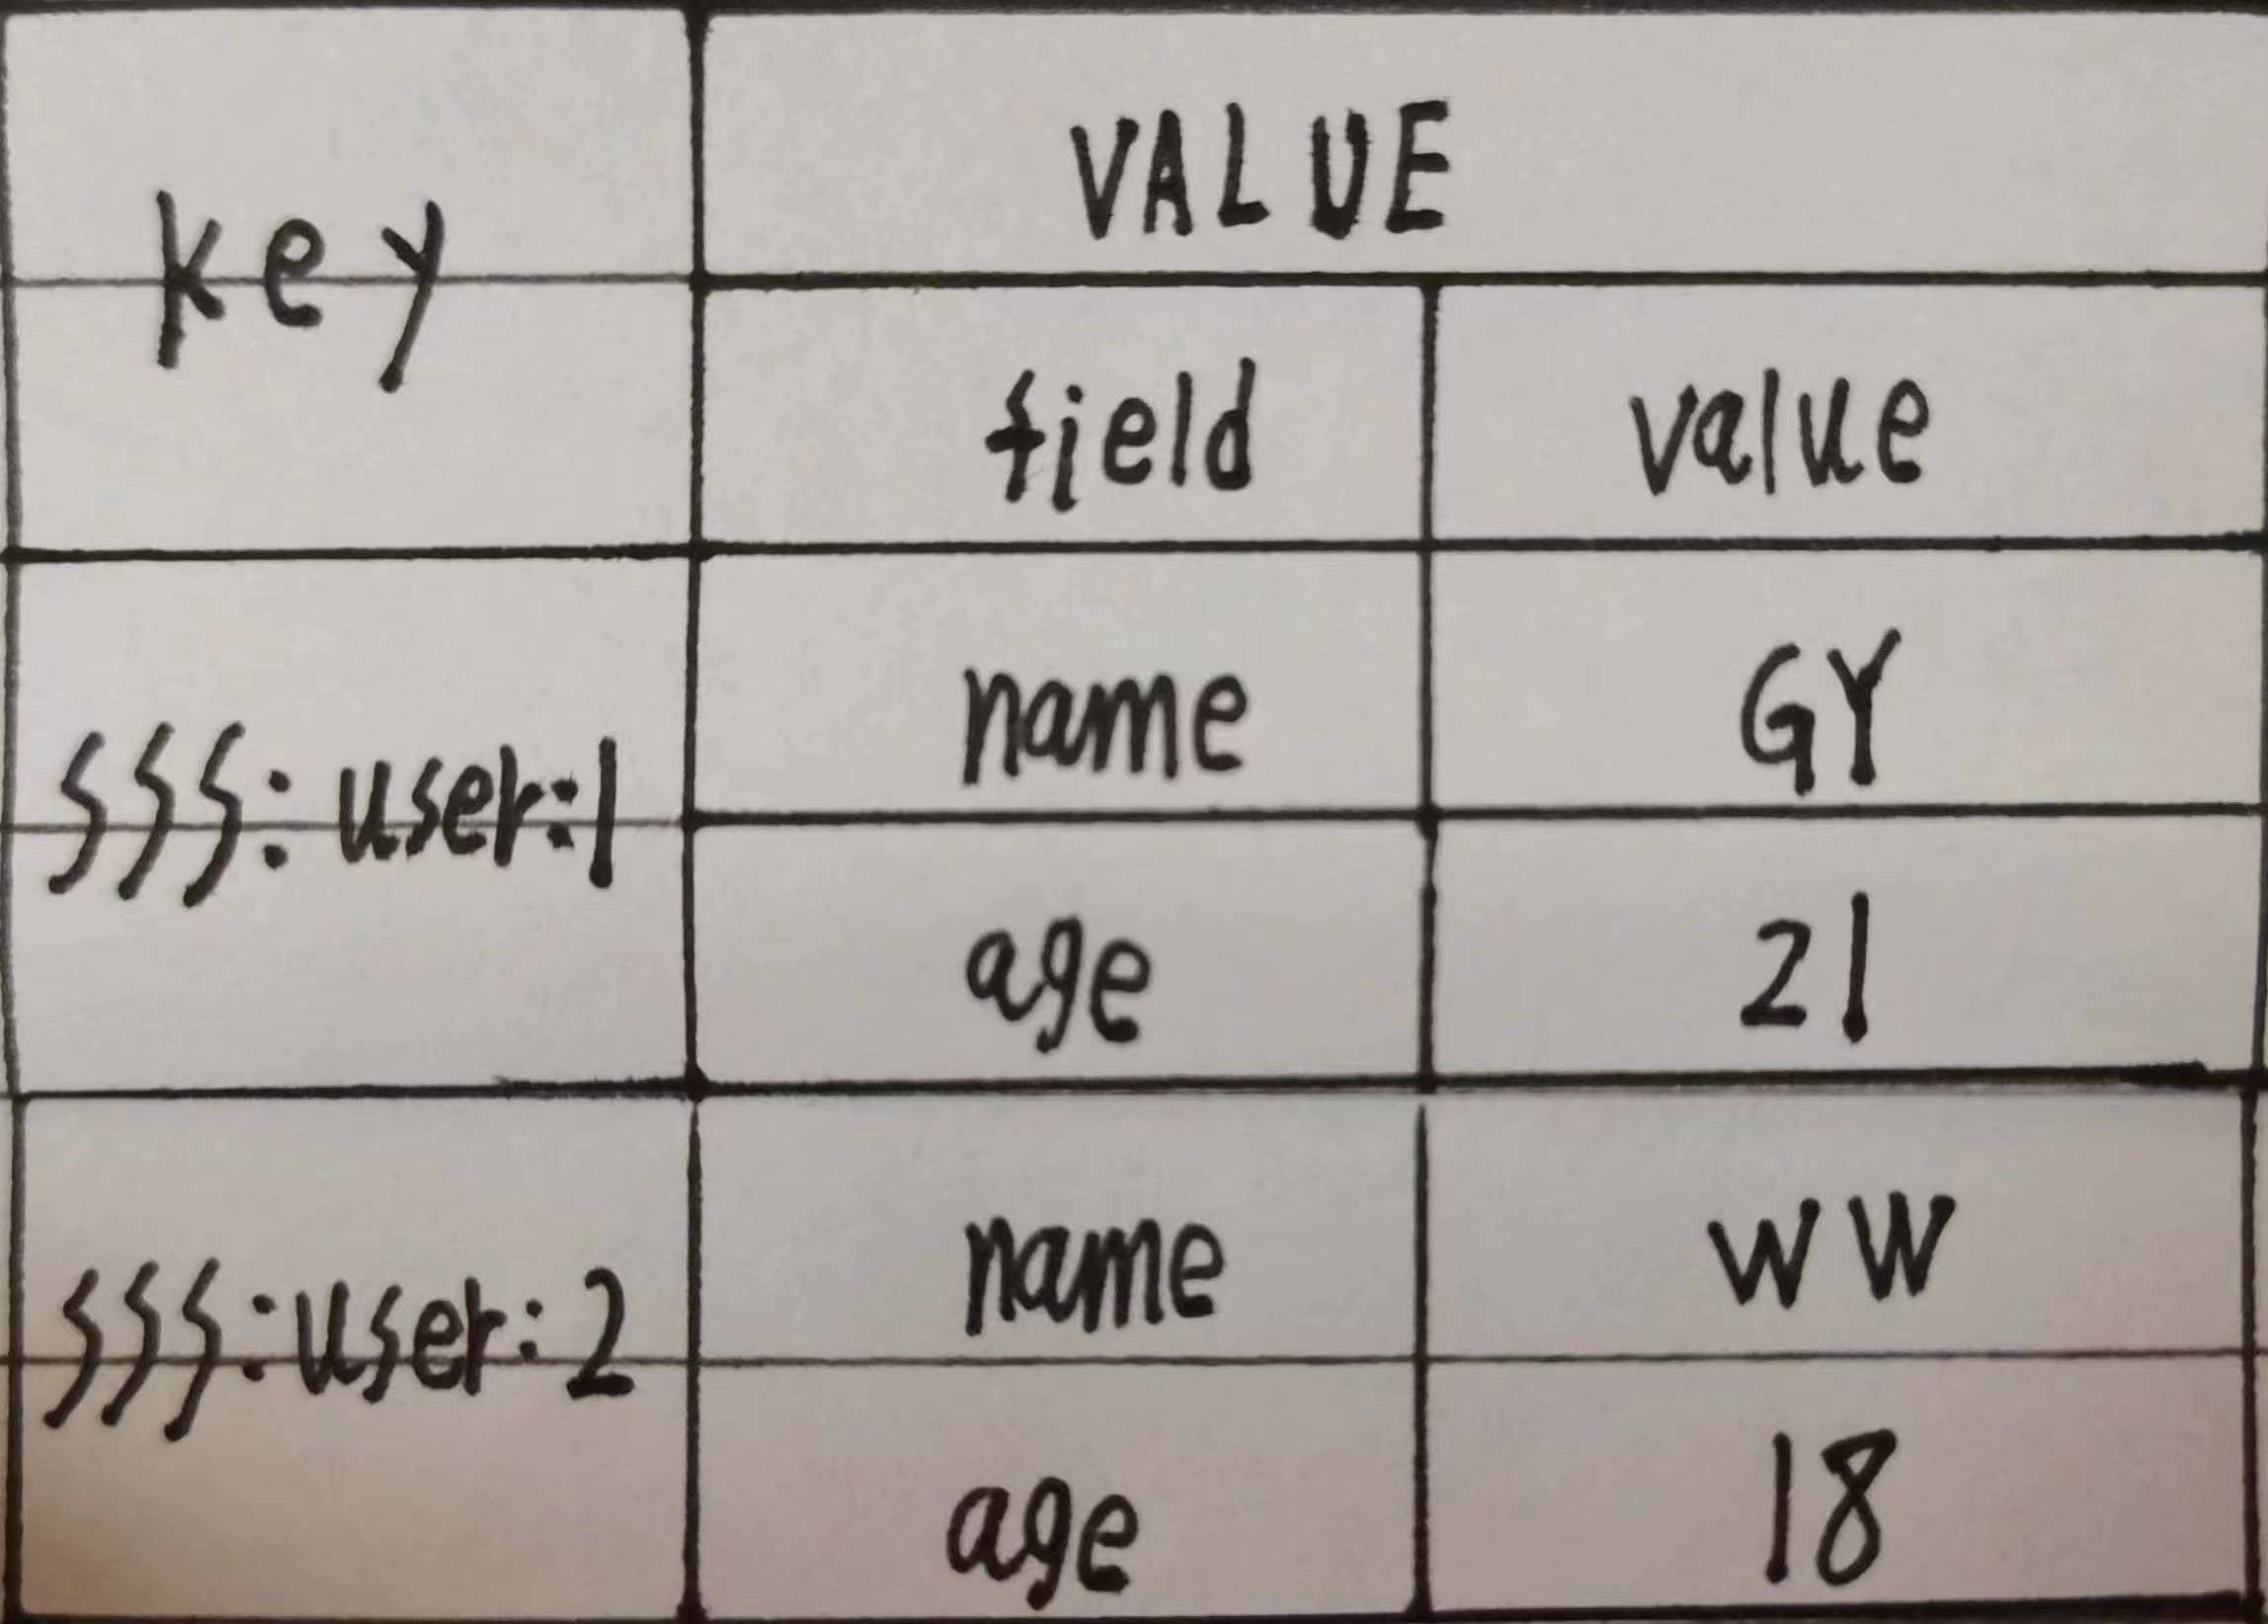 key
VALUE
field value
sss: user:1
name GY
age 21
sss:user:2
name WW
age 18